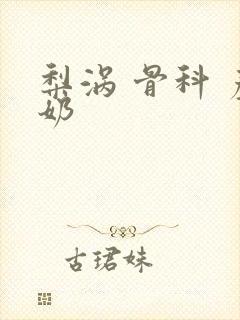 梨涡 骨科
奶
古珺妹